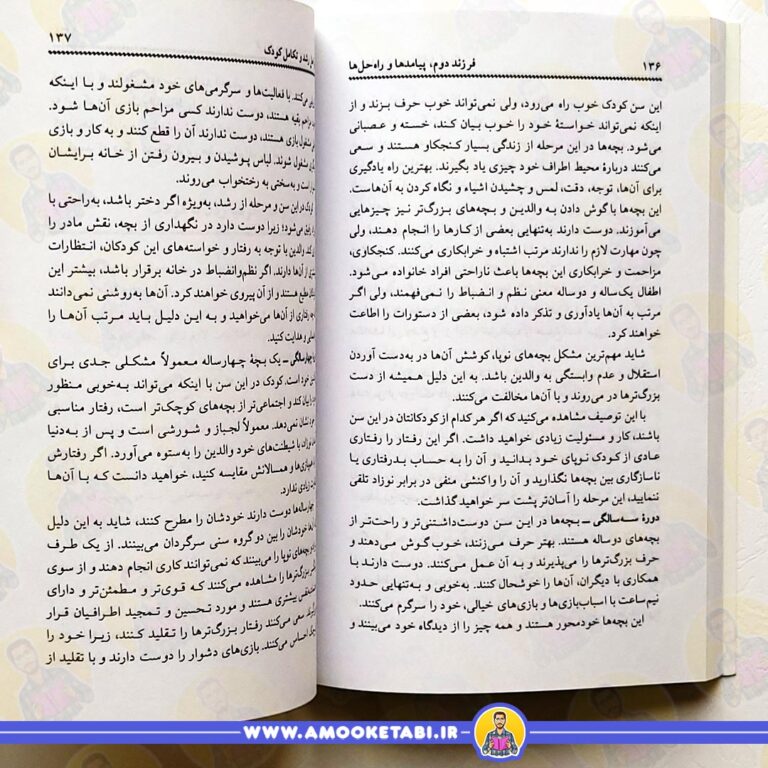 ۱۳۶
فرزند دوم، پیامدها و راه‌حل‌ها
این سن کودک خوب راه می‌رود، ولی نمی‌تواند خوب حرف بزند و از
اینکه نمی‌تواند خواستهٔ خود را خوب بیان کند، خسته و عصبانی
می‌شود. بچه‌ها در این مرحله از زندگی بسیار کنجکاو هستند و سعی
می‌کنند دربارهٔ محیط اطراف خود چیزی یاد بگیرند. بهترین راه یادگیری
برای آن‌ها، توجه، دقت، لمس و چشیدن اشیاء و نگاه کردن به آن‌هاست.
این بچه‌ها با گوش دادن به والدین و بچه‌های بزرگ‌تر نیز چیزهایی
می‌آموزند. دوست دارند به‌تنهایی بعضی از کارها را انجام دهند، ولی
چون مهارت لازم را ندارند مرتب اشتباه و خرابکاری می‌کنند. کنجکاوی،
مزاحمت و خرابکاری این بچه‌ها باعث ناراحتی افراد خانواده می‌شود.
اطفال یک‌ساله و دوساله معنی نظم و انضباط را نمی‌فهمند، ولی اگر
مرتب به آن‌ها یادآوری و تذکر داده شود، بعضی از دستورات را اطاعت
خواهند کرد.
شاید مهم‌ترین مشکل بچه‌های نوپا، کوشش آن‌ها در به‌دست آوردن
استقلال و عدم وابستگی به والدین باشد. به این دلیل همیشه از دست
بزرگ‌ترها در می‌روند و با آن‌ها مخالفت می‌کنند.
با این توصیف مشاهده می‌کنید که اگر هر کدام از کودکانتان در این سن
باشند، کار و مسئولیت زیادی خواهید داشت. اگر این رفتار را رفتاری
عادی از کودک نوپای خود بدانید و آن را به حساب بدرفتاری یا
ناسازگاری بین بچه‌ها نگذارید و آن را واکنشی منفی در برابر نوزاد تلقی
ننمایید، این مرحله را آسان‌تر پشت سر خواهید گذاشت.
دورهٔ سه‌سالگی ـ بچه‌ها در این سن دوست‌داشتنی‌تر و راحت‌تر از
بچه‌های دوساله هستند. بهتر حرف می‌زنند، خوب گوش می‌دهند و
حرف بزرگ‌ترها را می‌پذیرند و به آن عمل می‌کنند. دوست دارند با
همکاری با دیگران، آن‌ها را خوشحال کنند. به‌خوبی و به‌تنهایی حدود
نیم‌ساعت با اسباب‌بازی‌ها و بازی‌های خیالی، خود را سرگرم می‌کنند.
این بچه‌ها خودمحور هستند و همه چیز را از دیدگاه خود می‌بینند و
رشد و تکامل کودک
۱۳۷
می‌کنند. با فعالیت‌ها و سرگرمی‌های خود مشغولند و با اینکه
مزاحم بقیه هستند، دوست ندارند کسی مزاحم بازی آن‌ها شود.
مشغول بازی هستند، دوست ندارند آن را قطع کنند و به کار و بازی
مشغول شوند. لباس پوشیدن و بیرون رفتن از خانه برایشان
است و به‌سختی به رختخواب می‌روند.
کودک در این سن و مرحله از رشد، به‌ویژه اگر دختر باشد، به‌راحتی با
می‌شود؛ زیرا دوست دارد در نگهداری از بچه، نقش مادر را
کند. والدین با توجه به رفتار و خواسته‌های این کودکان، انتظارات
از آن‌ها دارند. اگر نظم‌وانضباط در خانه برقرار باشد، بیشتر این
مطیع هستند و از آن پیروی خواهند کرد. آن‌ها به‌روشنی نمی‌دانند
رفتاری از آن‌ها می‌خواهید و به این دلیل باید مرتب آن‌ها را
و هدایت کنید.
چهارسالگی ـ یک بچهٔ چهارساله معمولاً مشکلی جدی برای
خود است. کودک در این سن با اینکه می‌تواند به‌خوبی منظور
را بیان کند و اجتماعی‌تر از بچه‌های کوچک‌تر است، رفتار مناسبی
نشان نمی‌دهد. معمولاً لجباز و شورشی است و پس از به‌دنیا
نوزاد، با شیطنت‌های خود والدین را به‌ستوه می‌آورد. اگر رفتارش
همبازی‌ها و همسالانش مقایسه کنید، خواهید دانست که با آن‌ها
زیادی ندارد.
چهارساله‌ها دوست دارند خودشان را مطرح کنند، شاید به این دلیل
خودشان را بین دو گروه سنی سرگردان می‌بینند. از یک طرف
بچه‌های نوپا را می‌بینند که نمی‌توانند کاری انجام دهند و از سوی
بزرگ‌ترها را مشاهده می‌کنند که قوی‌تر و مطمئن‌تر و دارای
بیشتری هستند و مورد تحسین و تمجید اطرافیان قرار
سعی می‌کنند رفتار بزرگ‌ترها را تقلید کنند، زیرا خود را
احساس می‌کنند. بازی‌های دشوار را دوست دارند و با تقلید از
WWW.AMOOKETABI.IR